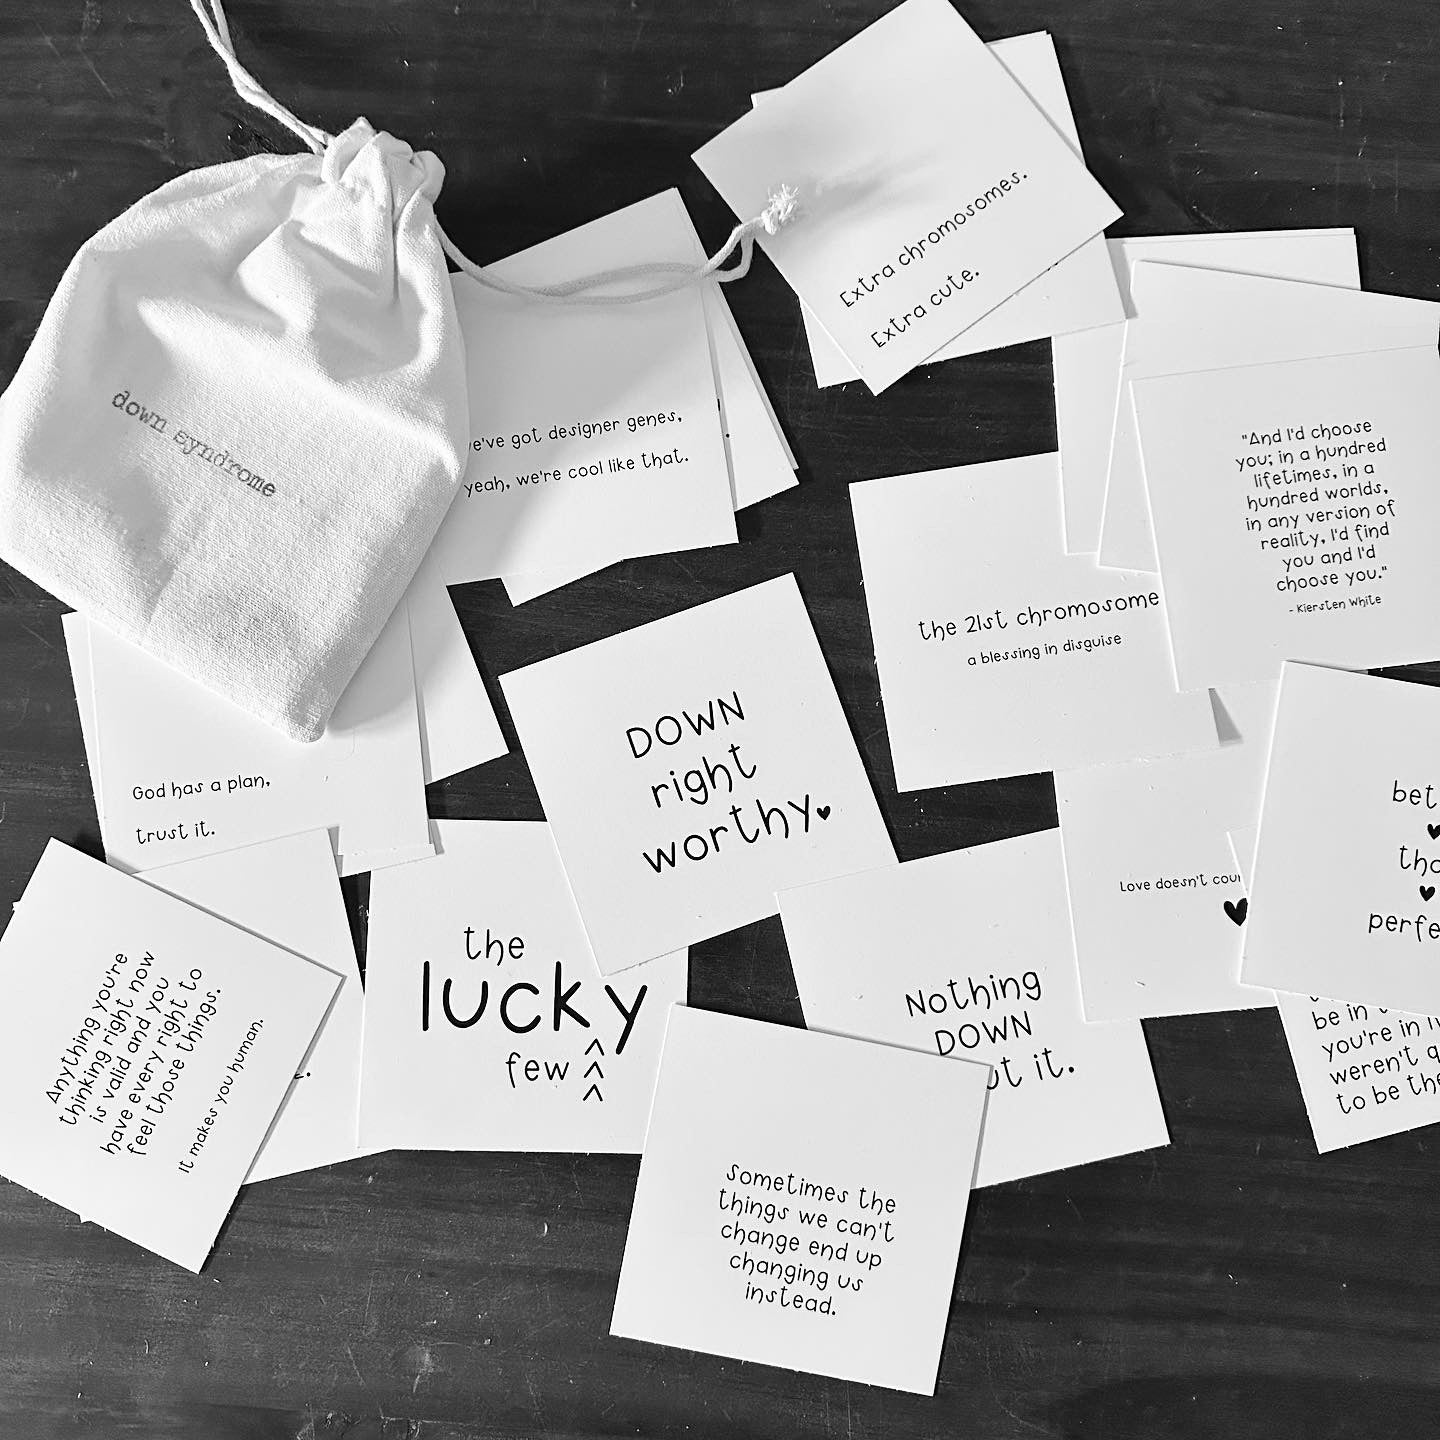 Extra chromosomes.
Extra cute.
down syndrome
e've got designer genes,
yeah, we're cool like that.
"And I'd choose
you; in a hundred
lifetimes, in a
hundred worlds,
in any version of
reality, I'd find
you and I'd
choose you."
- Kiersten White
the 21st chromosome
a blessing in disguise
DOWN
right
worthy♥
God has a plan,
trust it.
bet
♥
tho
♥
perfe
Love doesn't cou
♥
the
lucky
few ^^^
Nothing
DOWN
ut it.
Anything you're
thinking right now
is valid and you
have every right to
feel those things.
It makes you human.
be in
you're in
weren't
to be the
Sometimes the
things we can't
change end up
changing us
instead.